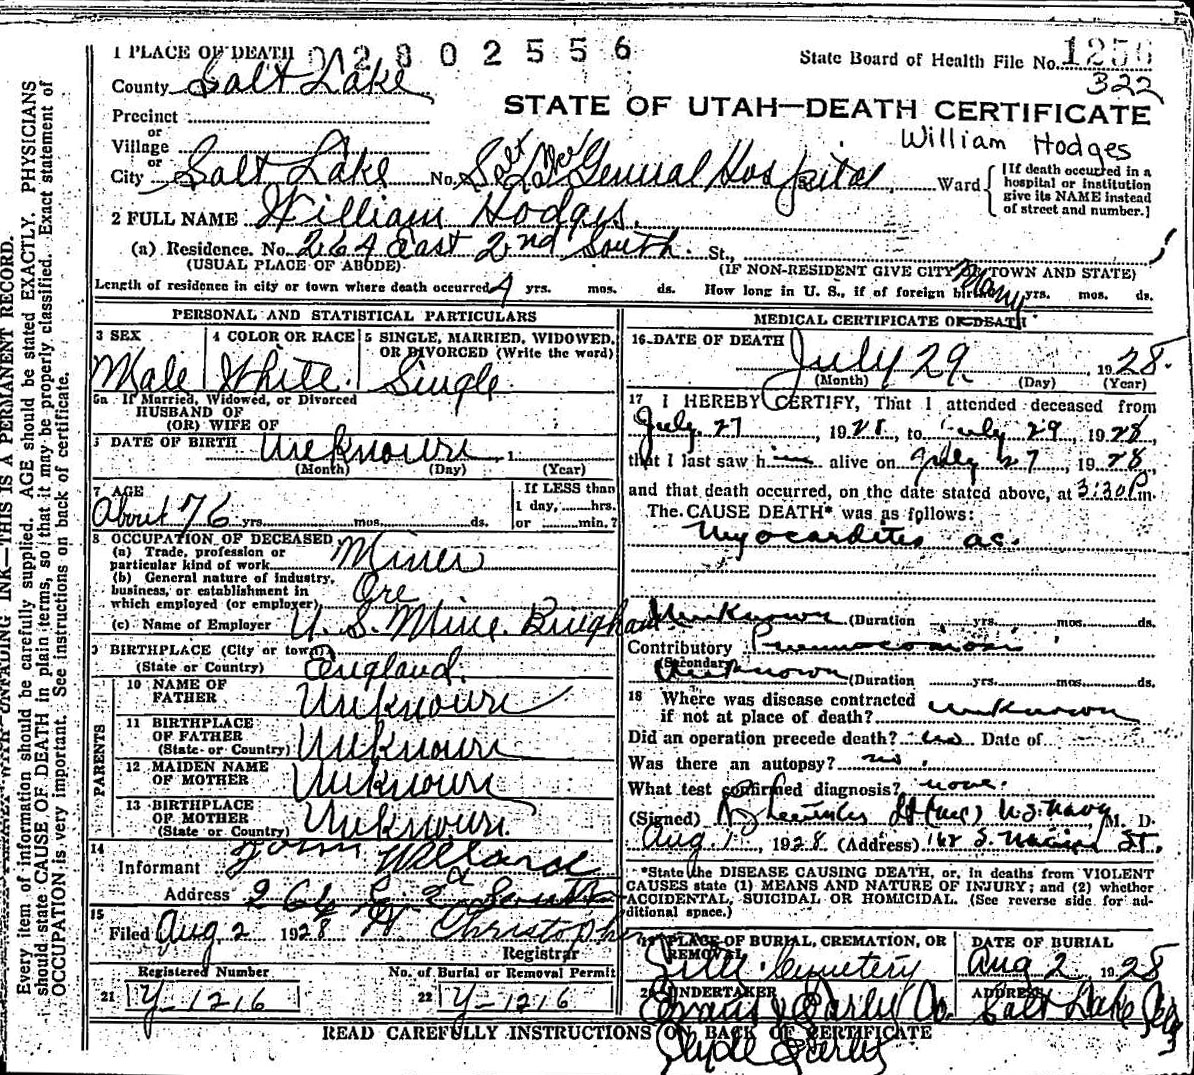 1 PLACE OF DEATH 2802556
State Board of Health File No. 1256
322
County Salt Lake
STATE OF UTAH—DEATH CERTIFICATE
William Hodges
Precinct
or
Village
or
City Salt Lake No. Salt Lake General Hospital Ward
[If death occurred in a hospital or institution give its NAME instead of street and number.]
2 FULL NAME William Hodges.
(a) Residence. No. 264 East 2nd South. St.,
(USUAL PLACE OF ABODE) (IF NON-RESIDENT GIVE CITY OR TOWN AND STATE)
Length of residence in city or town where death occurred 4 yrs. mos. ds. How long in U. S., if of foreign birth Many yrs. mos. ds.
PERSONAL AND STATISTICAL PARTICULARS
3 SEX
Male
4 COLOR OR RACE
White.
5 SINGLE, MARRIED, WIDOWED, OR DIVORCED (Write the word)
Single.
5a If Married, Widowed, or Divorced
HUSBAND OF
(OR) WIFE OF
DATE OF BIRTH Unknown
(Month) (Day) (Year)
7 AGE
About 76 yrs. mos. ds.
If LESS than
1 day, hrs.
or min.?
8 OCCUPATION OF DECEASED
(a) Trade, profession or
particular kind of work Miner
(b) General nature of industry,
business, or establishment in
which employed (or employer) Ore
(c) Name of Employer U. S. Mine. Bingham
9 BIRTHPLACE (City or town)
(State or Country) England.
PARENTS
10 NAME OF FATHER Unknown
11 BIRTHPLACE OF FATHER (State or Country) Unknown
12 MAIDEN NAME OF MOTHER Unknown
13 BIRTHPLACE OF MOTHER (State or Country) Unknown.
14
Informant John
Address
15
Filed Aug 2 1928 Christopher
Registrar
Registered Number
21 Y-1216
No. of Burial or Removal Permit
22 Y-1216
MEDICAL CERTIFICATE OF DEATH
16 DATE OF DEATH July 29. 1928.
(Month) (Day) (Year)
17 I HEREBY CERTIFY, That I attended deceased from
July 27, 1928, to July 29, 1928,
that I last saw him alive on July 27, 1928,
and that death occurred, on the date stated above, at 3:30 P.m.
The CAUSE DEATH* was as follows:
Myocarditis ac.
Unknown (Duration yrs. mos. ds.
Contributory
(Secondary)
Unknown (Duration yrs. mos. ds.
18 Where was disease contracted
if not at place of death? unknown
Did an operation precede death? no Date of
Was there an autopsy? no.
What test confirmed diagnosis? none.
(Signed) U.S. Navy, M. D.
Aug. 1, 1928 (Address) S. St.
*State the DISEASE CAUSING DEATH, or, in deaths from VIOLENT
CAUSES state (1) MEANS AND NATURE OF INJURY; and (2) whether
ACCIDENTAL, SUICIDAL OR HOMICIDAL. (See reverse side for ad-
ditional space.)
19 PLACE OF BURIAL, CREMATION, OR REMOVAL
Cemetery
DATE OF BURIAL
Aug 2 1928
20 UNDERTAKER
Evans & Earley Co.
Clyde Earley
ADDRESS
Salt Lake City
READ CAREFULLY INSTRUCTIONS ON BACK OF CERTIFICATE
Every item of information should be carefully supplied. AGE should be stated EXACTLY. PHYSICIANS
should state CAUSE OF DEATH in plain terms, so that it may be properly classified. Exact statement of
OCCUPATION is very important. See instructions on back of certificate.
UNFADING INK—THIS IS A PERMANENT RECORD.